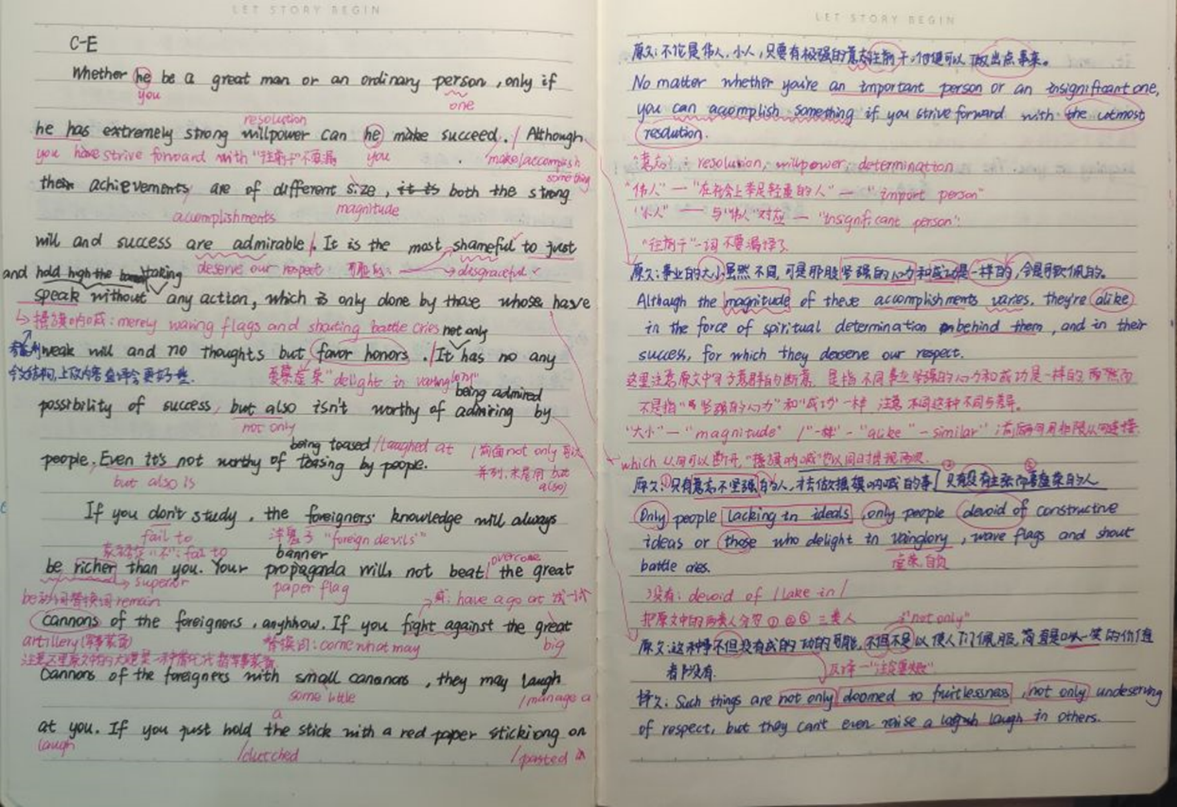 LET STORY BEGIN
C-E
Whether he be a great man or an ordinary person, only if
you
one
resolution
he has extremely strong willpower can he make succeed. / Although
you have strive forward with "往前干"不要漏
you
make/accomplish
something
their achievements are of different size, it is both the strong
accomplishments
magnitude
will and success are admirable /. It is the most shameful to just
deserve our respect
disgraceful
and hold high the
speak without any action, which is only done by those whose have
摇旗呐喊: merely waving flags and shouting battle cries
not only
weak will and no thoughts but favor honors. / It has no any
"delight in vainglory"
being admired
possibility of success, but also isn't worthy of admiring by
not only
being teased / laughed at
people. Even it's not worthy of teasing by people.
but also is
前面not only
并列,
but
also
If you don't study, the foreigners' knowledge will always
fail to
洋鬼子 "foreign devils"
fail to
banner
overcome
be richer than you. Your propaganda will not beat / the great
superior
paper flag
have a go at 试一试
be动词替换词 remain
cannons of the foreigners, anyhhow. If you fight against the great
artillery
替换词: come what may
big
Cannons of the foreigners with small cananors, they may laugh
some little
/manage a
a
at you. If you just hold the stick with a red paper stickiong on
laugh
/clutched
/pasted
LET STORY BEGIN
原文:不论是伟人,小人,只要有极强的意志往前干,他便可以做出点事来。
No matter whether you're an important person or an insignificant one,
you can accomplish something if you strive forward with the utmost
resolution.
"意志": resolution, willpower, determination
"伟人"—"在社会上举足轻重的人"—"import person"
"小人"—与"伟人"对应—"insignificant person"
"往前干"一词不要漏译了
原文:事业的大小虽然不同,可是那股坚强的心力和成功是一样的,全是可敬佩的。
Although the magnitude of these accomplishments varies, they're alike
in the force of spiritual determination behind them, and in their
success, for which they deserve our respect.
这里注意原文中句子意群的断意,是指不同事业坚强的心力和成功是一样的
不是指"坚强的心力"和"成功"一样 注意
"大小"—"magnitude" / "一样"-"alike"-similar"
which 从句可以断开,
原文:只有意志不坚强的人,才去做摇旗呐喊的事,只有没有主张而喜虚荣的人
Only people lacking in ideals, only people devoid of constructive
ideas or those who delight in vainglory, wave flags and shout
battle cries.
虚荣,自负
没有: devoid of / lake in /
把原文中的两类人分罗①②③三类人
"not only"
原文:这种事不但没有成功的可能,不但不足以使人们佩服,简直是以一笑的价值
都没有.
反译—"注定要失败"
译文: Such things are not only doomed to fruitlessness, not only undeserving
of respect, but they can't even raise a laugh in others.